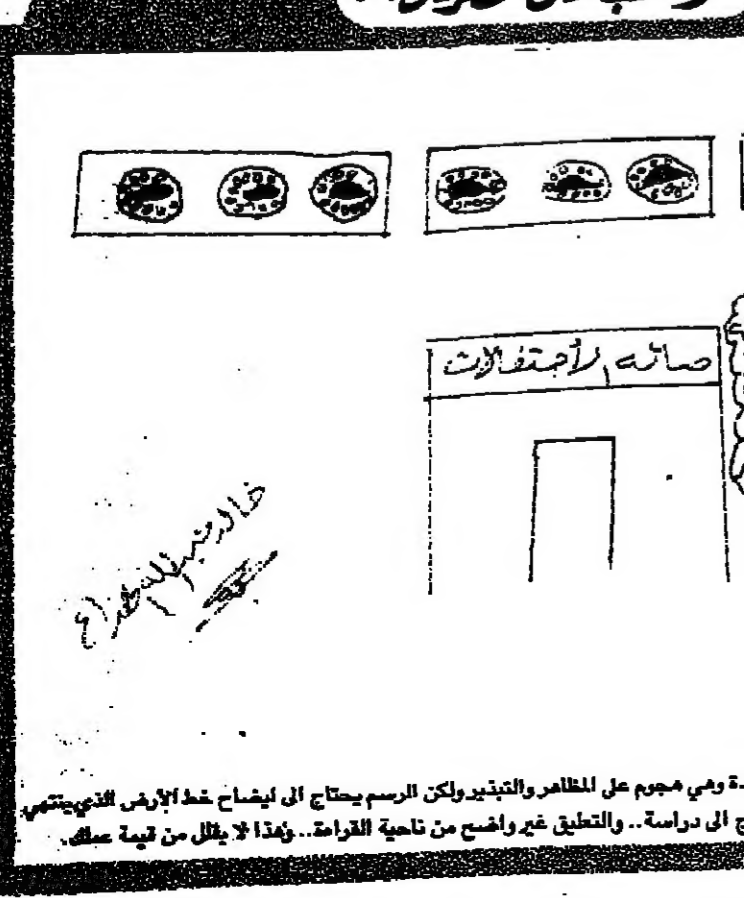 صاله الأحتفالات
خالد عبدالله
وهي هجوم على المظاهر والتبذير ولكن الرسم يحتاج الى ليضاح خط الأرض الذي ينتهي
الى دراسة.. والتعليق غير واضح من ناحية القراءة.. وهذا لا يقلل من قيمة عملك.